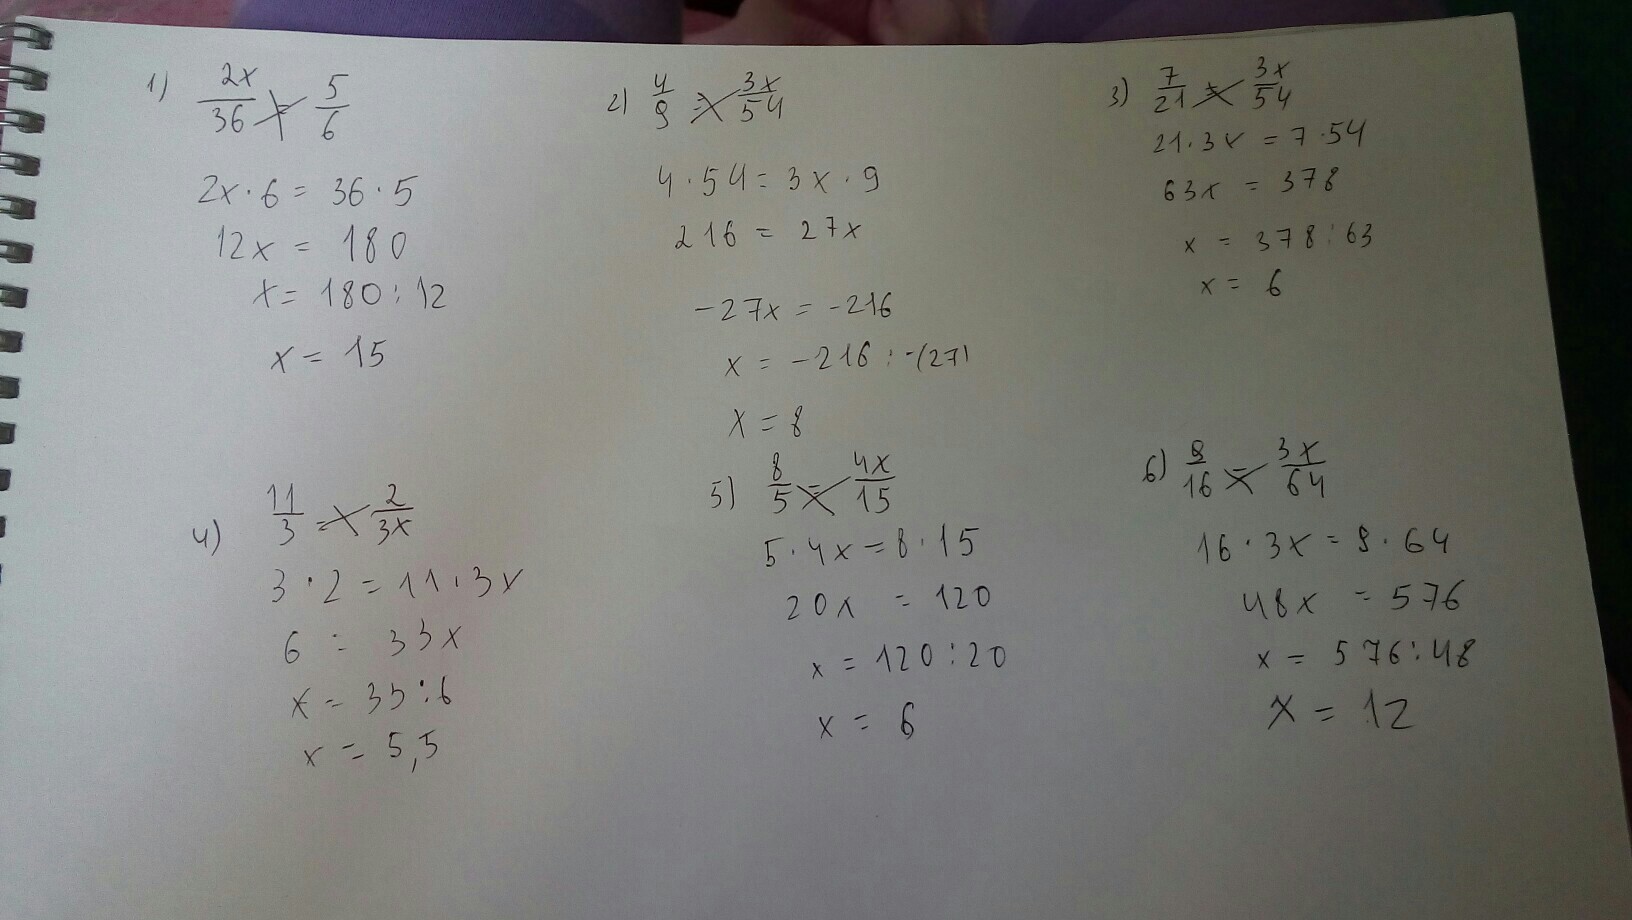 1) 2x/36 = 5/6
2x · 6 = 36 · 5
12x = 180
x = 180 : 12
x = 15
2) 4/9 = 3x/54
4 · 54 = 3x · 9
216 = 27x
-27x = -216
x = -216 : -(27)
x = 8
3) 7/21 = 3x/54
21 · 3x = 7 · 54
63x = 378
x = 378 : 63
x = 6
4) 11/3 = 2/3x
3 · 2 = 11 · 3x
6 = 33x
x = 33 : 6
x = 5,5
5) 8/5 = 4x/15
5 · 4x = 8 · 15
20x = 120
x = 120 : 20
x = 6
6) 9/16 = 3x/64
16 · 3x = 9 · 64
48x = 576
x = 576 : 48
x = 12